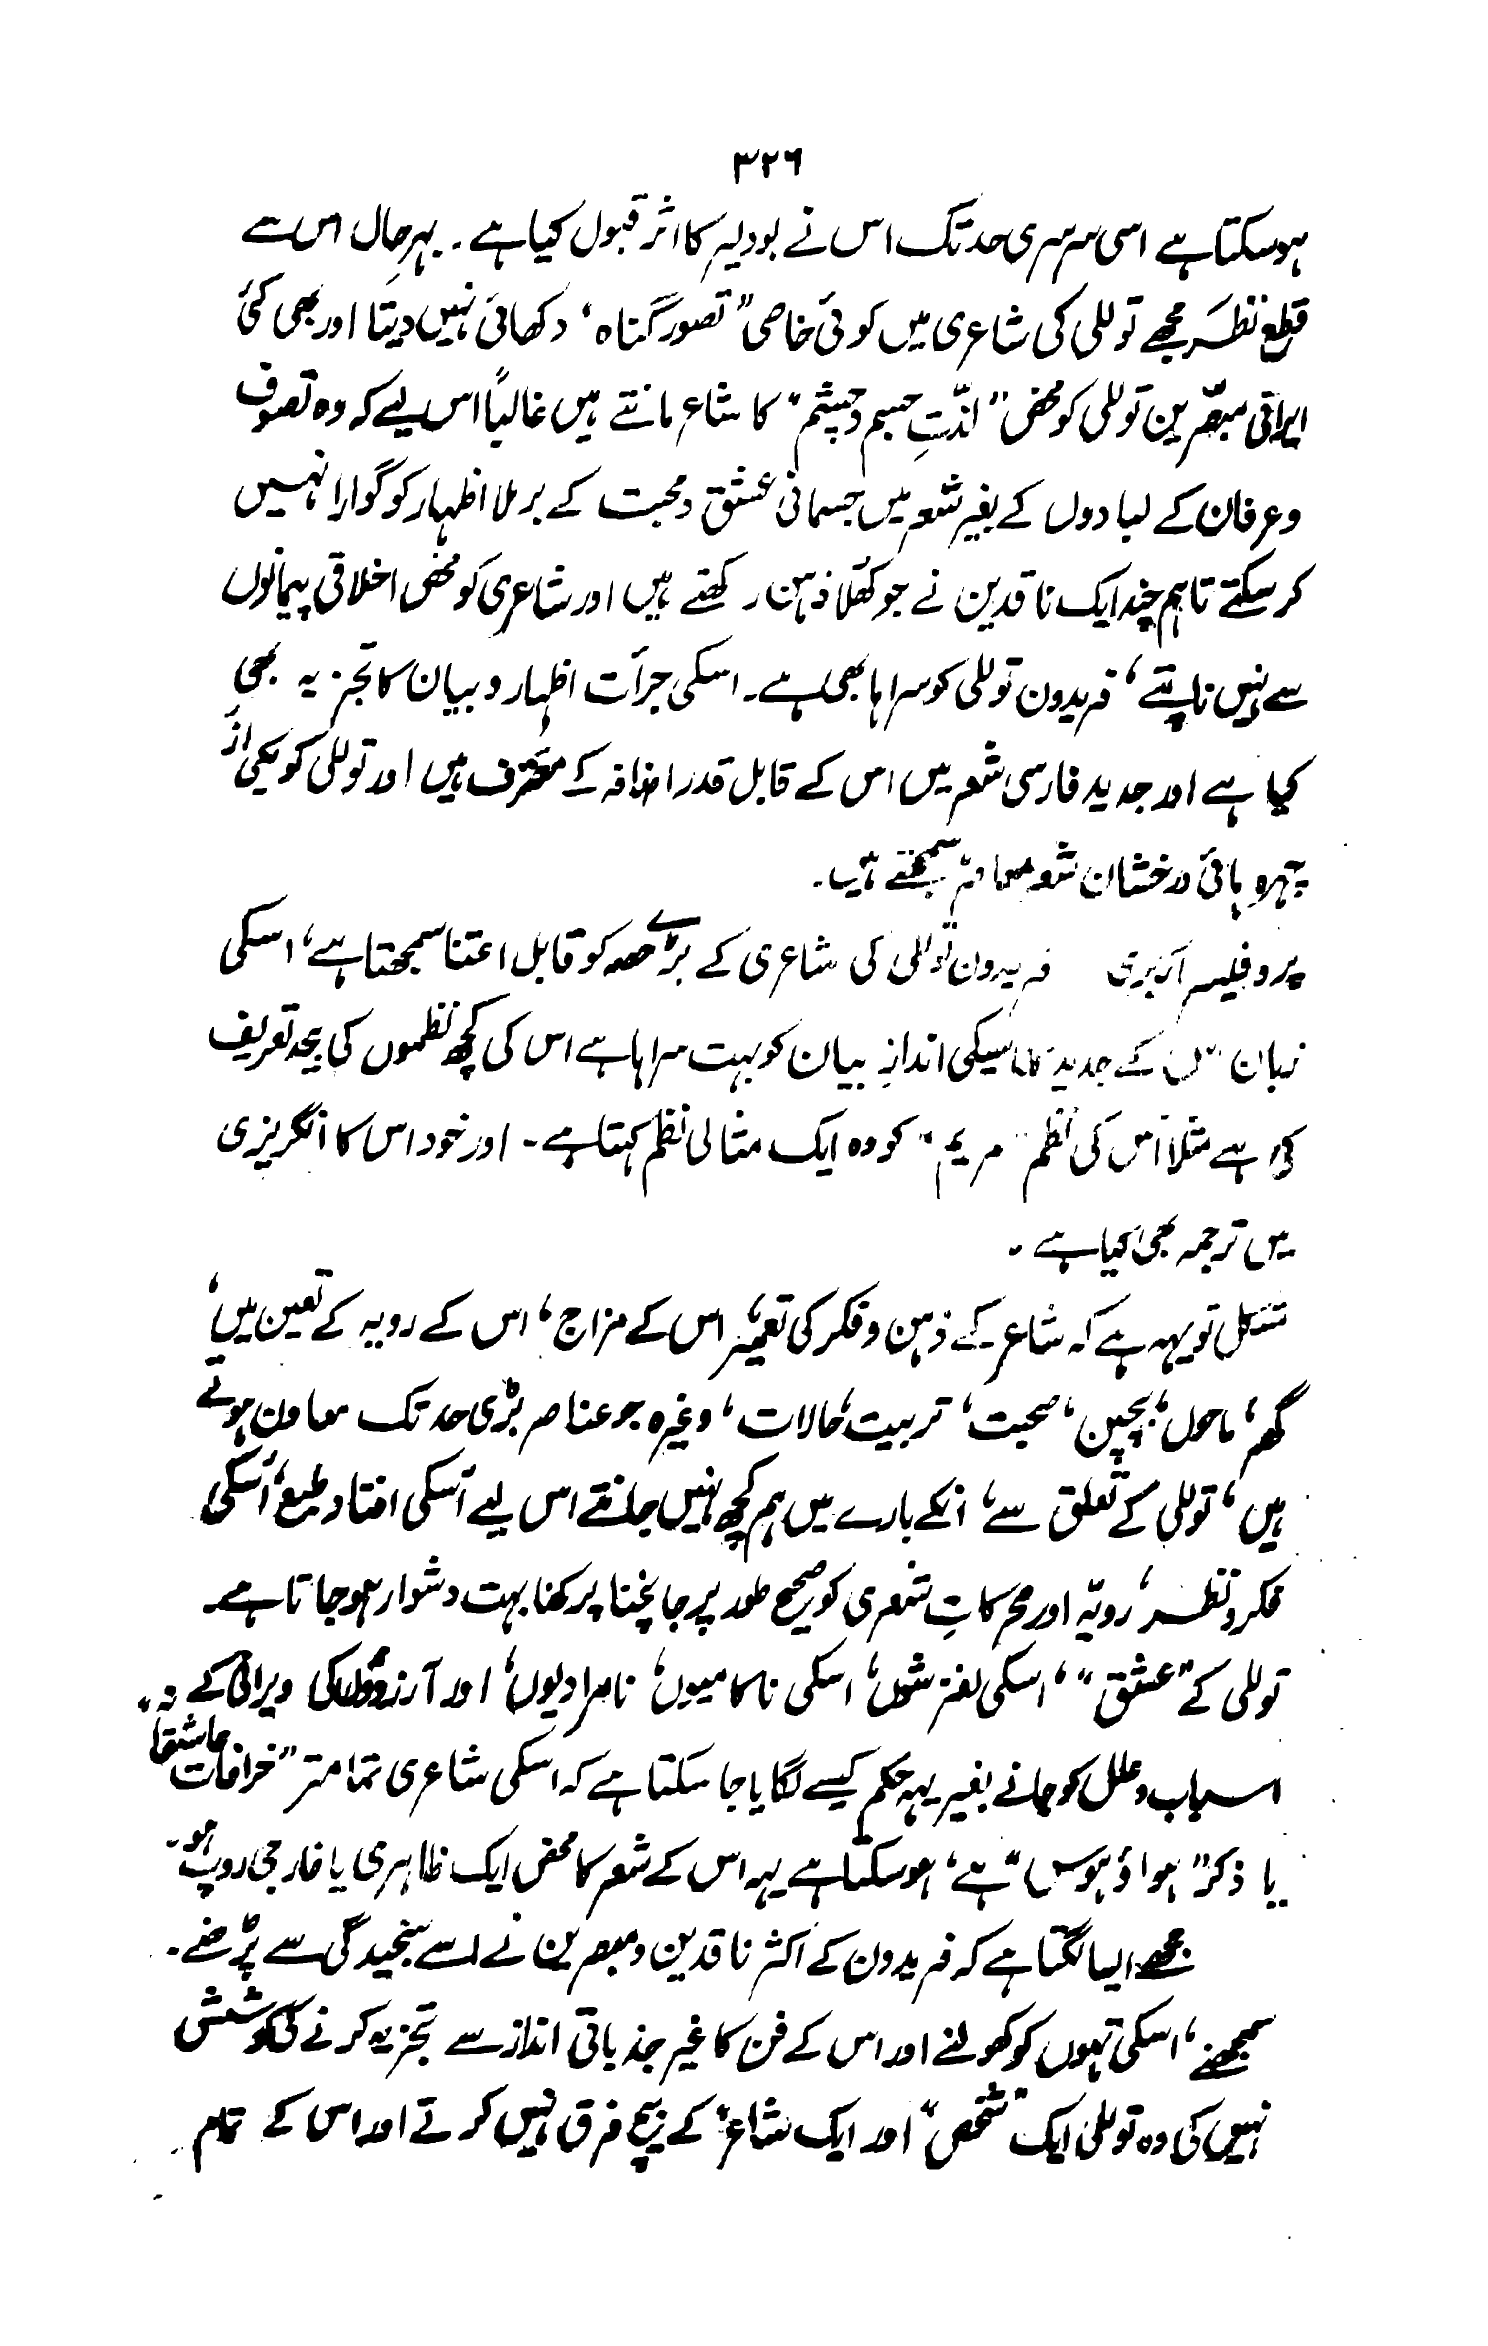 ۳۲۶
ہوسکتا ہے اسی سرسری حد تک اس نے بودلیر کا اثر قبول کیا ہے۔ بہرحال اس سے
قطع نظر مجھے توللی کی شاعری میں کوئی خاص "تصور گناہ" دکھائی نہیں دیتا اور بھی کئی
ایرانی مبصّرین توللی کو محض "لذّتِ جسم و چشم" کا شاعر مانتے ہیں غالباً اس لیے کہ وہ تصوف
و عرفان کے لبادوں کے بغیر شعر میں جسمانی عشق و محبت کے برملا اظہار کو گوارا نہیں
کرسکتے تاہم چند ایک ناقدین نے جو کھُلا ذہن رکھتے ہیں اور شاعری کو محض اخلاقی پیمانوں
سے نہیں ناپتے، فریدون توللی کو سراہا بھی ہے۔ اسکی جرأت اظہار و بیان کا تجزیہ بھی
کیا ہے اور جدید فارسی شعر میں اس کے قابل قدر اضافہ کے معترف ہیں اور توللی کو یکی از
چہرہ ہائی درخشان شعر معاصر سمجھتے ہیں۔
پروفیسر آربری فریدون توللی کی شاعری کے بڑے حصہ کو قابل اعتنا سمجھتا ہے، اسکی
زبان اس کے جدید کلاسیکی اندازِ بیان کو بہت سراہا ہے اس کی کچھ نظموں کی بیحد تعریف
کی ہے مثلاً اُس کی نظم "مریم" کو وہ ایک مثالی نظم کہتا ہے۔ اور خود اس کا انگریزی
میں ترجمہ بھی کیا ہے۔
مشکل تو یہہ ہے کہ شاعر کے ذہن و فکر کی تعمیر، اس کے مزاج، اس کے رویہ کے تعین میں،
گھر، ماحول، بچپن، صحبت، تربیت، حالات، وغیرہ جو عناصر بڑی حد تک معاون ہوتے
ہیں، توللی کے تعلق سے، انکے بارے میں ہم کچھ نہیں جانتے اس لیے اُسکی افتاد طبع، اُسکی
فکر و نظر، رویّہ اور محرکاتِ شعری کو صحیح طور پر جانچنا پرکھنا بہت دشوار ہو جاتا ہے۔
توللی کے "عشق"، اسکی لغزشوں، اسکی ناکامیوں، نامرادیوں، اور آرزوؤں کی ویرانی کے
اسباب و علل کو جانے بغیر یہہ حکم کیسے لگایا جا سکتا ہے کہ اسکی شاعری تمامتر "خرافات عاشقانہ"
یا ذکر "ہوا و ہوس" ہے، ہوسکتا ہے یہہ اس کے شعر کا محض ایک ظاہری یا خارجی روپ ہو۔
مجھے ایسا لگتا ہے کہ فریدون کے اکثر ناقدین و مبصرین نے اسے سنجیدگی سے پڑھنے۔
سمجھنے، اسکی تہوں کو کھولنے اور اس کے فن کا غیر جذباتی انداز سے تجزیہ کرنے کی کوشش
نہیں کی وہ توللی ایک "شخص" اور ایک "شاعر" کے بیچ فرق نہیں کرتے اور اس کے تمام